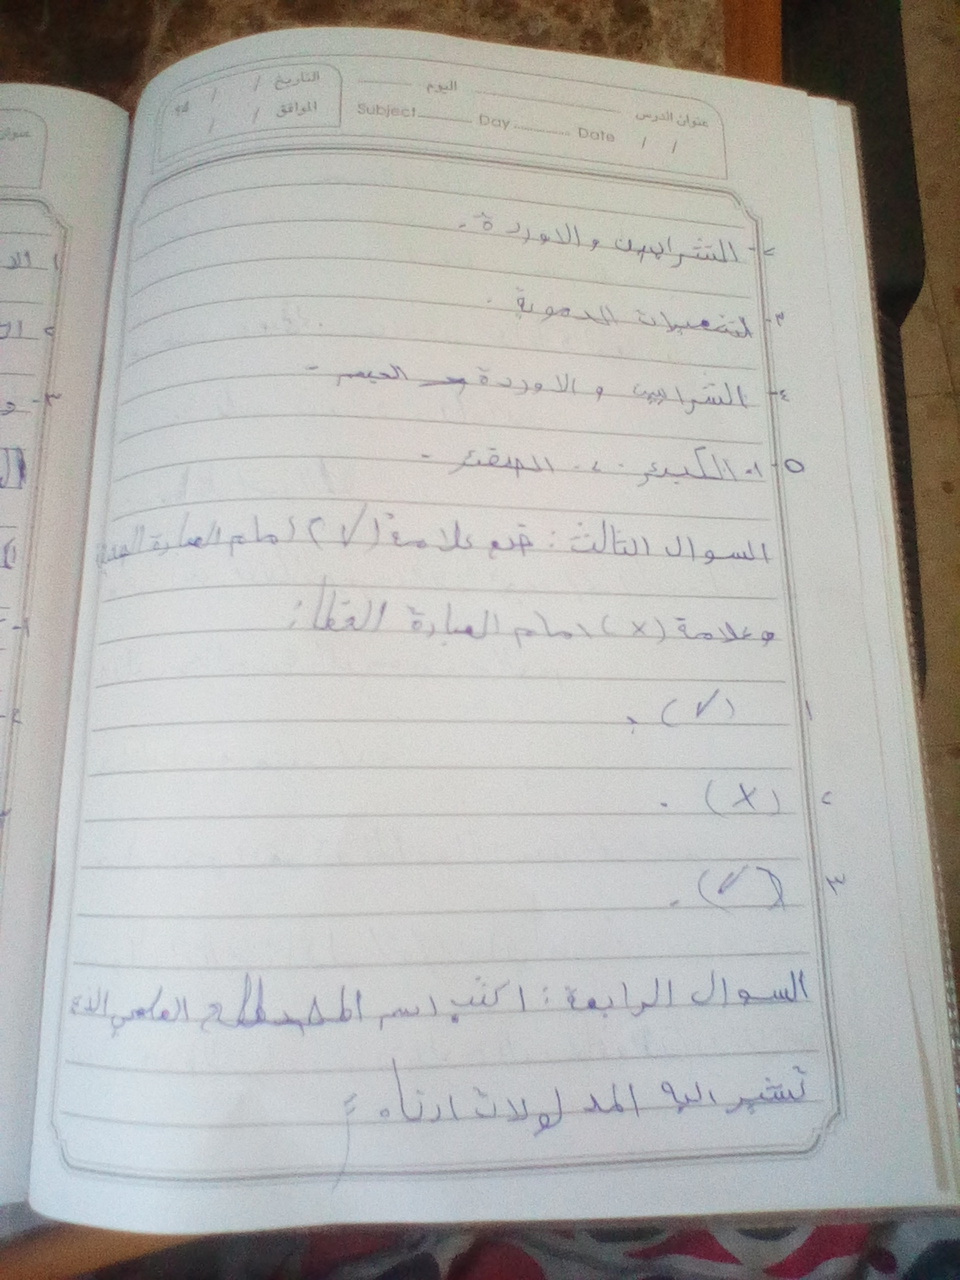 التاريخ / /
الموافق / /
اليوم
عنوان الدرس
Subject Day Date / /
٢- الشرايين والاوردة.
٣- لشعيرات الدموية.
٤- الشرايين والاوردة
٥- ١. الكبرى. ٢. الصغرى.
السوال الثالث: ضع علامة (√) امام العبارة
وعلامة (×) امام العبارة الخطأ:
١ (√).
٢ (×).
٣ (√).
السوال الرابعة: اكتب اسم المصطلح العلمي الذي
تشير اليه المدلولات ادناه: